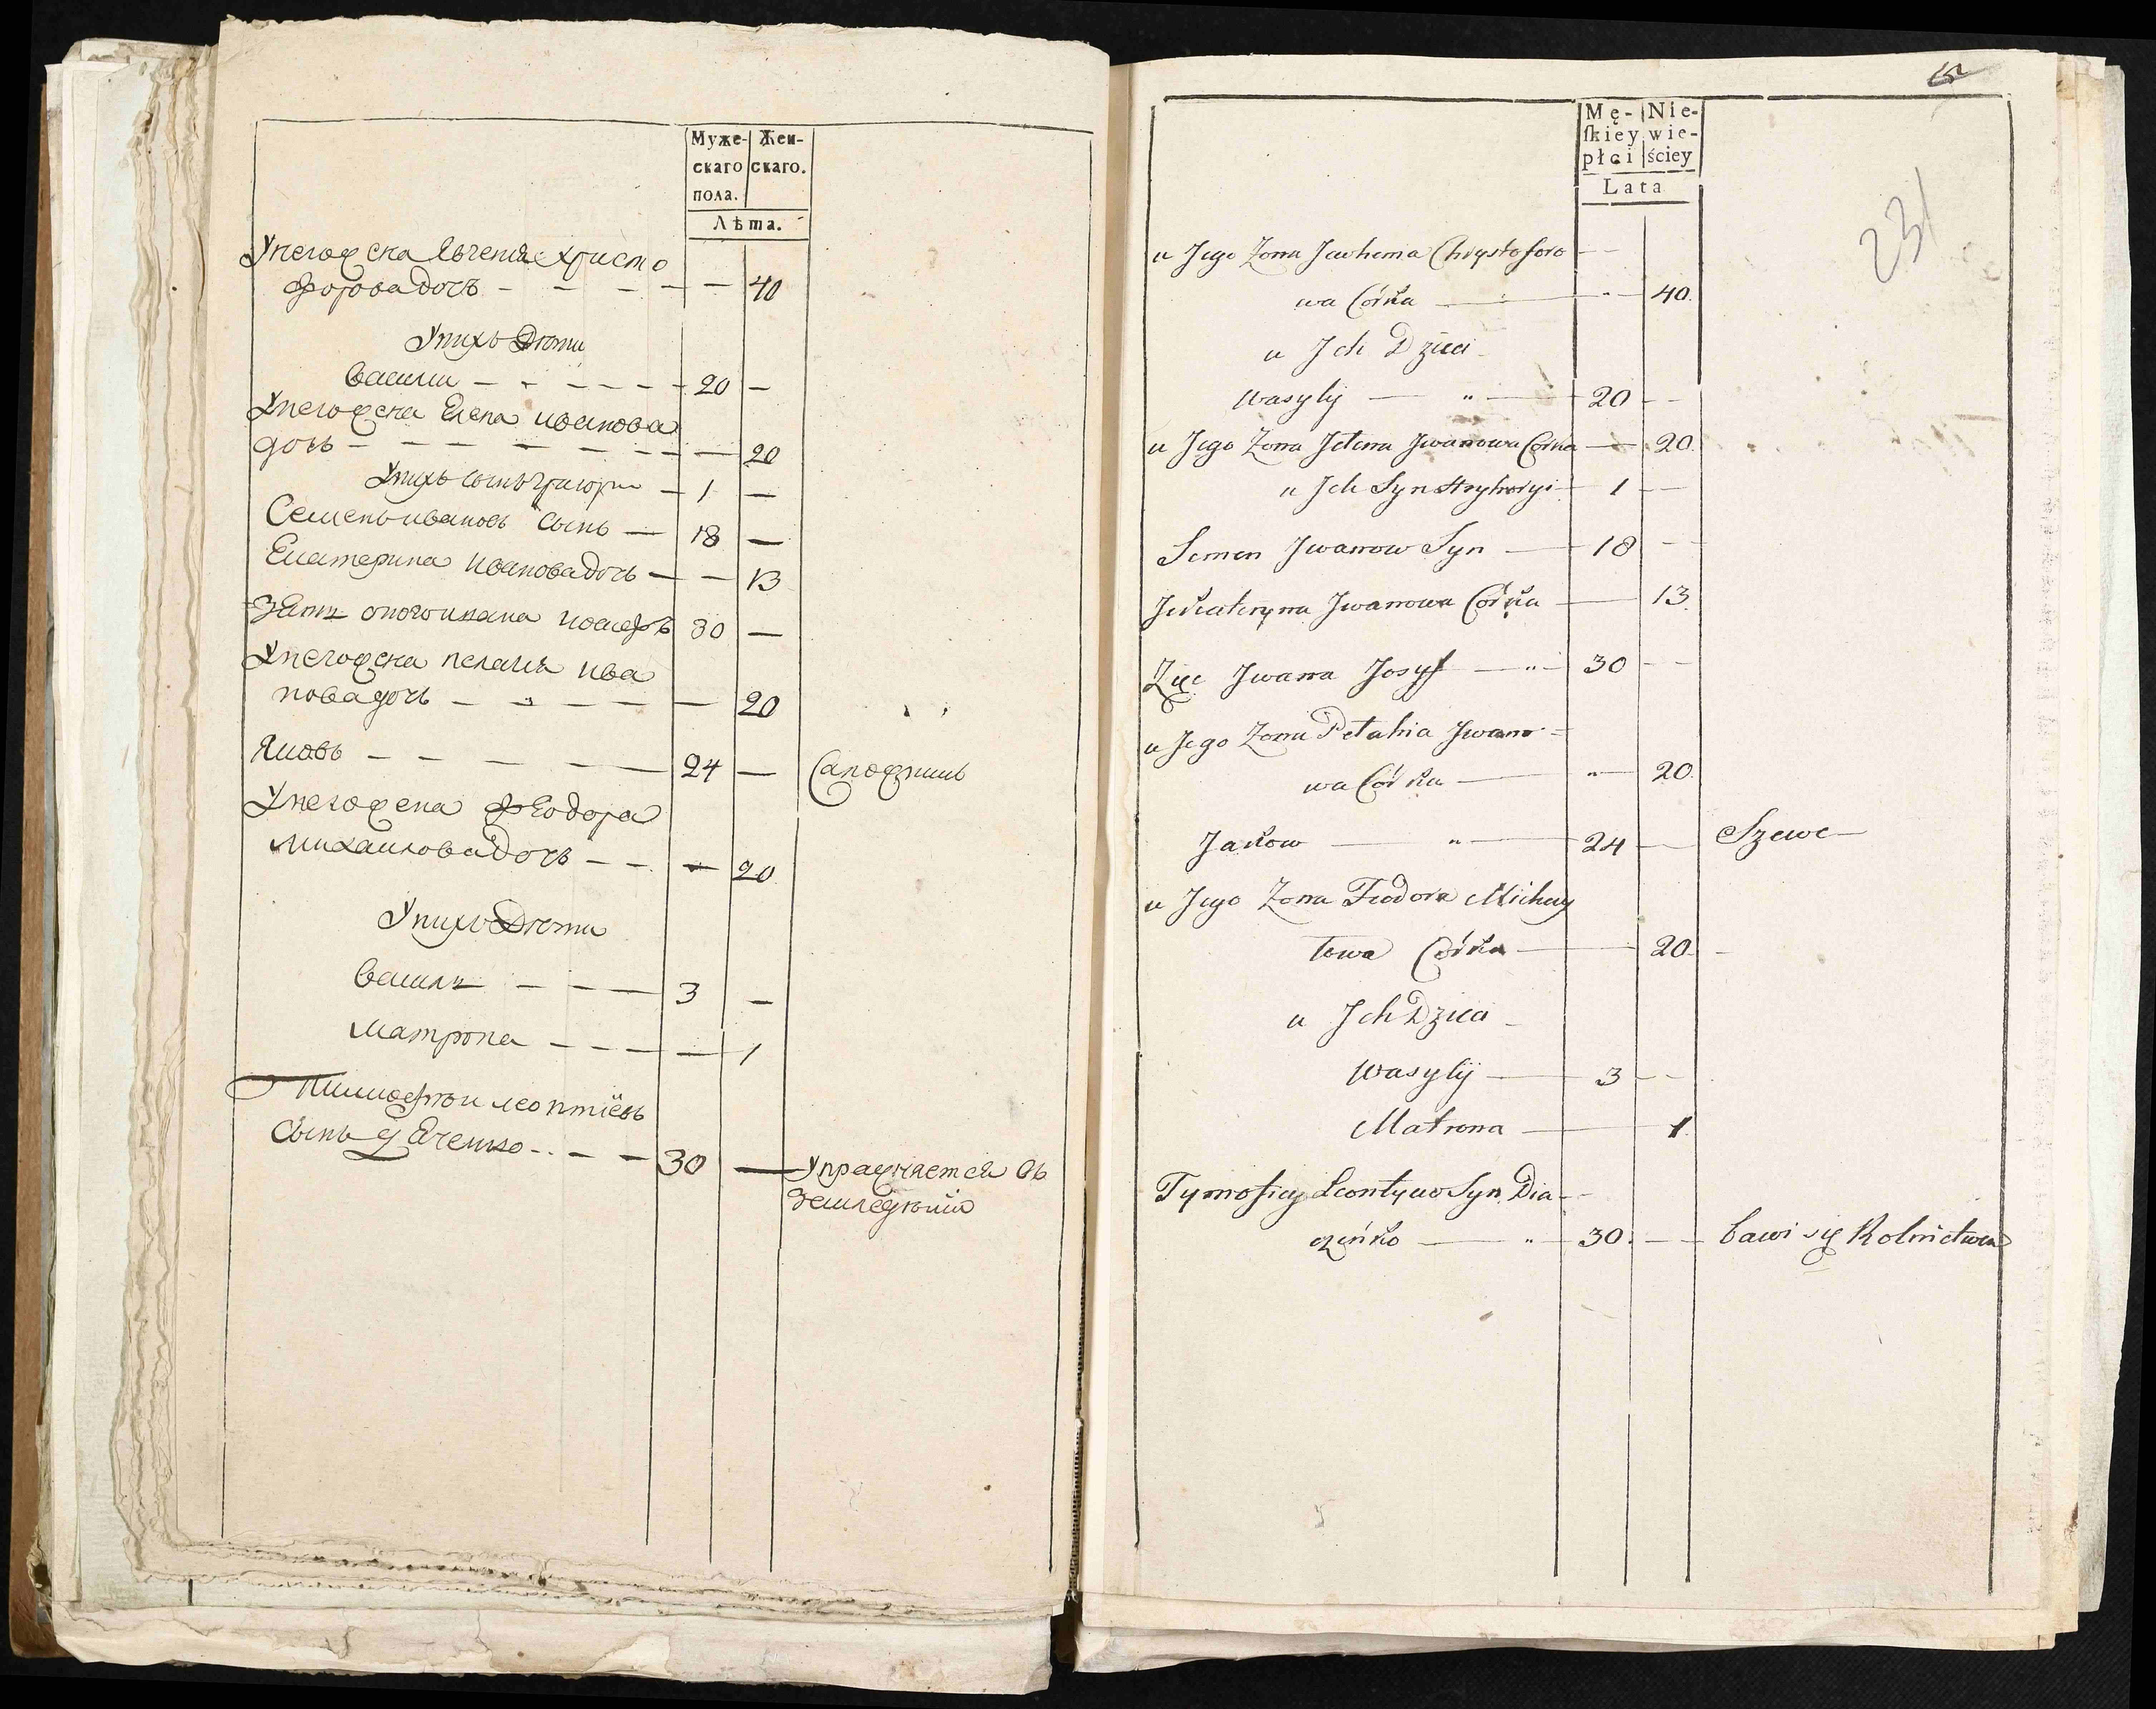 Муже-
скаго
пола.
Жен-
скаго.
Лѣта.
Унего жена Евгения Христо
форова дочь - - - - - 40
Унихъ дѣти
Василий - - - - - 20 -
Унего жена Елена иванова
дочь - - - - - - - 20
Унихъ сынъ григори - 1 -
Семенъ ивановъ сынъ - 18 -
Екатерина ивановадочь - - 13
Зять ивана иосифъ 30 -
Унего жена пелагия ива
новадочь - - - - - - 20
Яковъ - - - - - 24 - Сапожникъ
Унего жена феодора
михаиловадочь - - - 20
Унихъ дѣти
Василий - - - 3 -
Матрона - - - - 1
тимофей леонтиевъ
сынъ дяченко - - - 30 - Упражняется въ
земледѣлiи
15
Mę-
ſkiey
płci
Nie-
wie-
ściey
Lata
231
u Jego Zona Jewhenia Chrystoforo - -
wa Córka - - - 40.
u Jch Dzieci -
Wasylij - " - 20 - -
u Jego Zona Jelena Jwanowa Córka - 20.
u Jch Syn Hryhoryi - 1 - -
Semen Jwanow Syn - 18 - -
Jekateryna Jwanowa Córka - 13.
Zięc Jwana Josyf - " - 30 - -
u Jego Zona Pelahia Jwano =
wa Córka - " - 20.
Jakow - " - 24 - Szewc -
u Jego Zona Feodora Michay
łowa Córka - 20. -
u Jch Dzieci -
Wasylij - 3 - -
Matrona - 1.
Tymofiey Leontyew Syn Dia - -
czeńko - " - 30. - - bawi się Rolnictwem